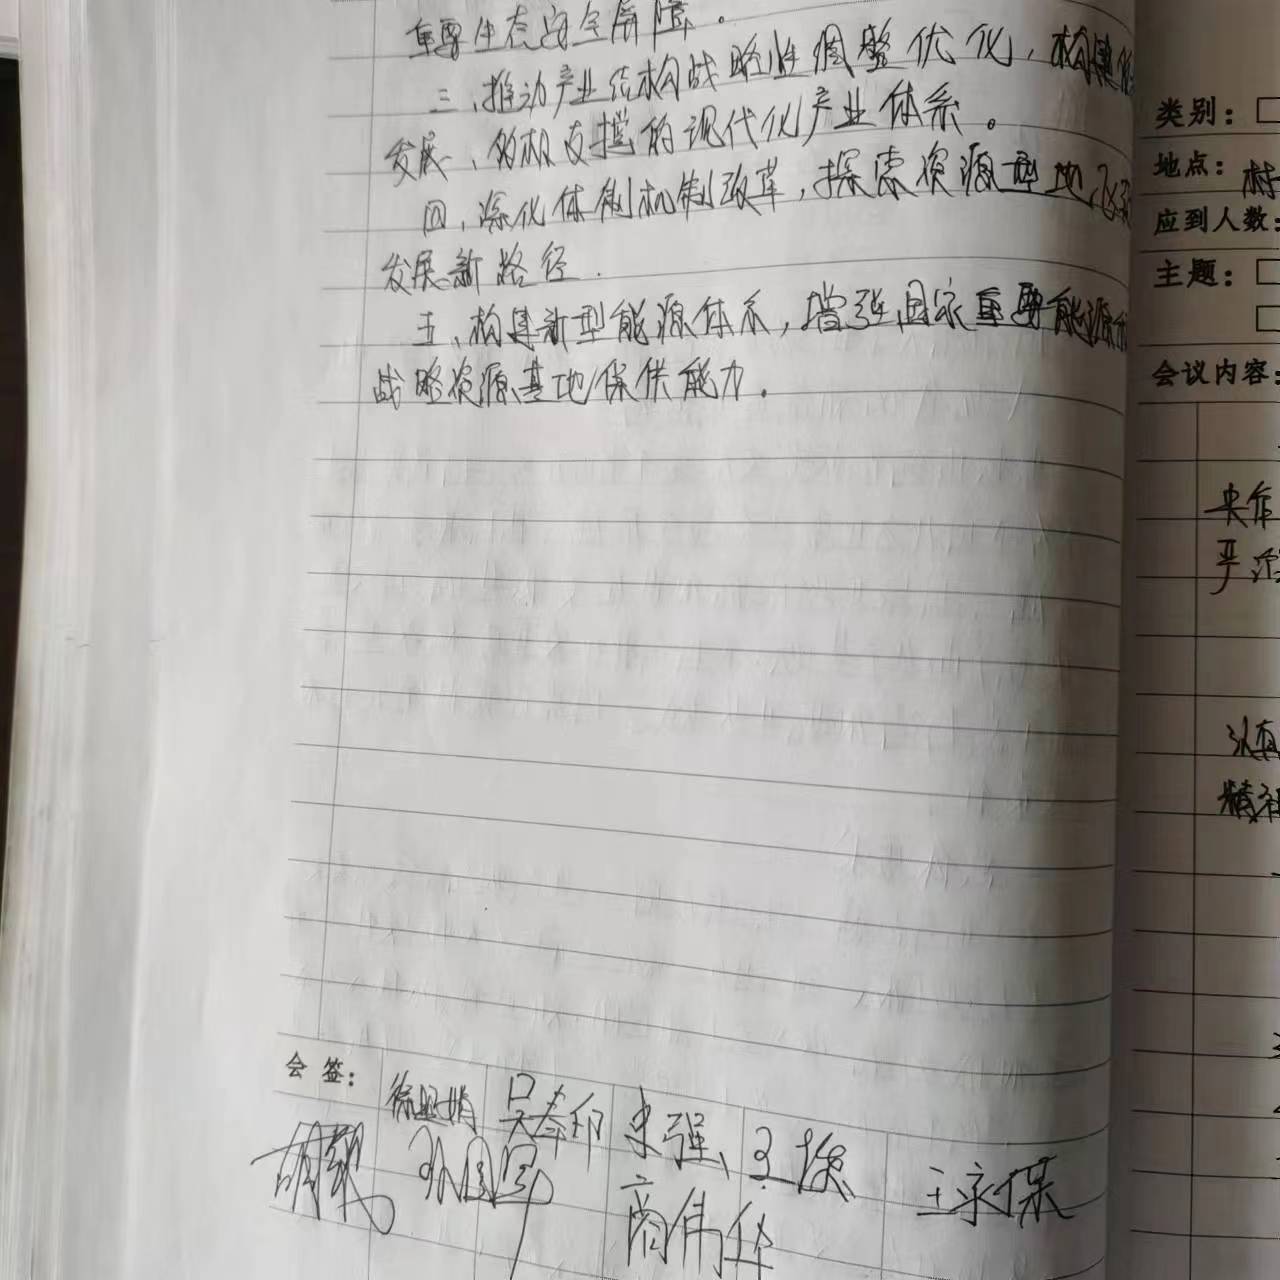 重要生态安全屏障。
三、推动产业结构战略性调整优化，构建
发展、多极支撑的现代化产业体系。
四、深化体制机制改革，探索资源型地
发展新路径.
五、构建新型能源体系，增强国家重要能源
战略资源基地保供能力。
会签：
吴奉印 史强 王
商伟华 王永保
类别：
地点：村
应到人数：
主题：
会议内容：
央作
严
认真
精神